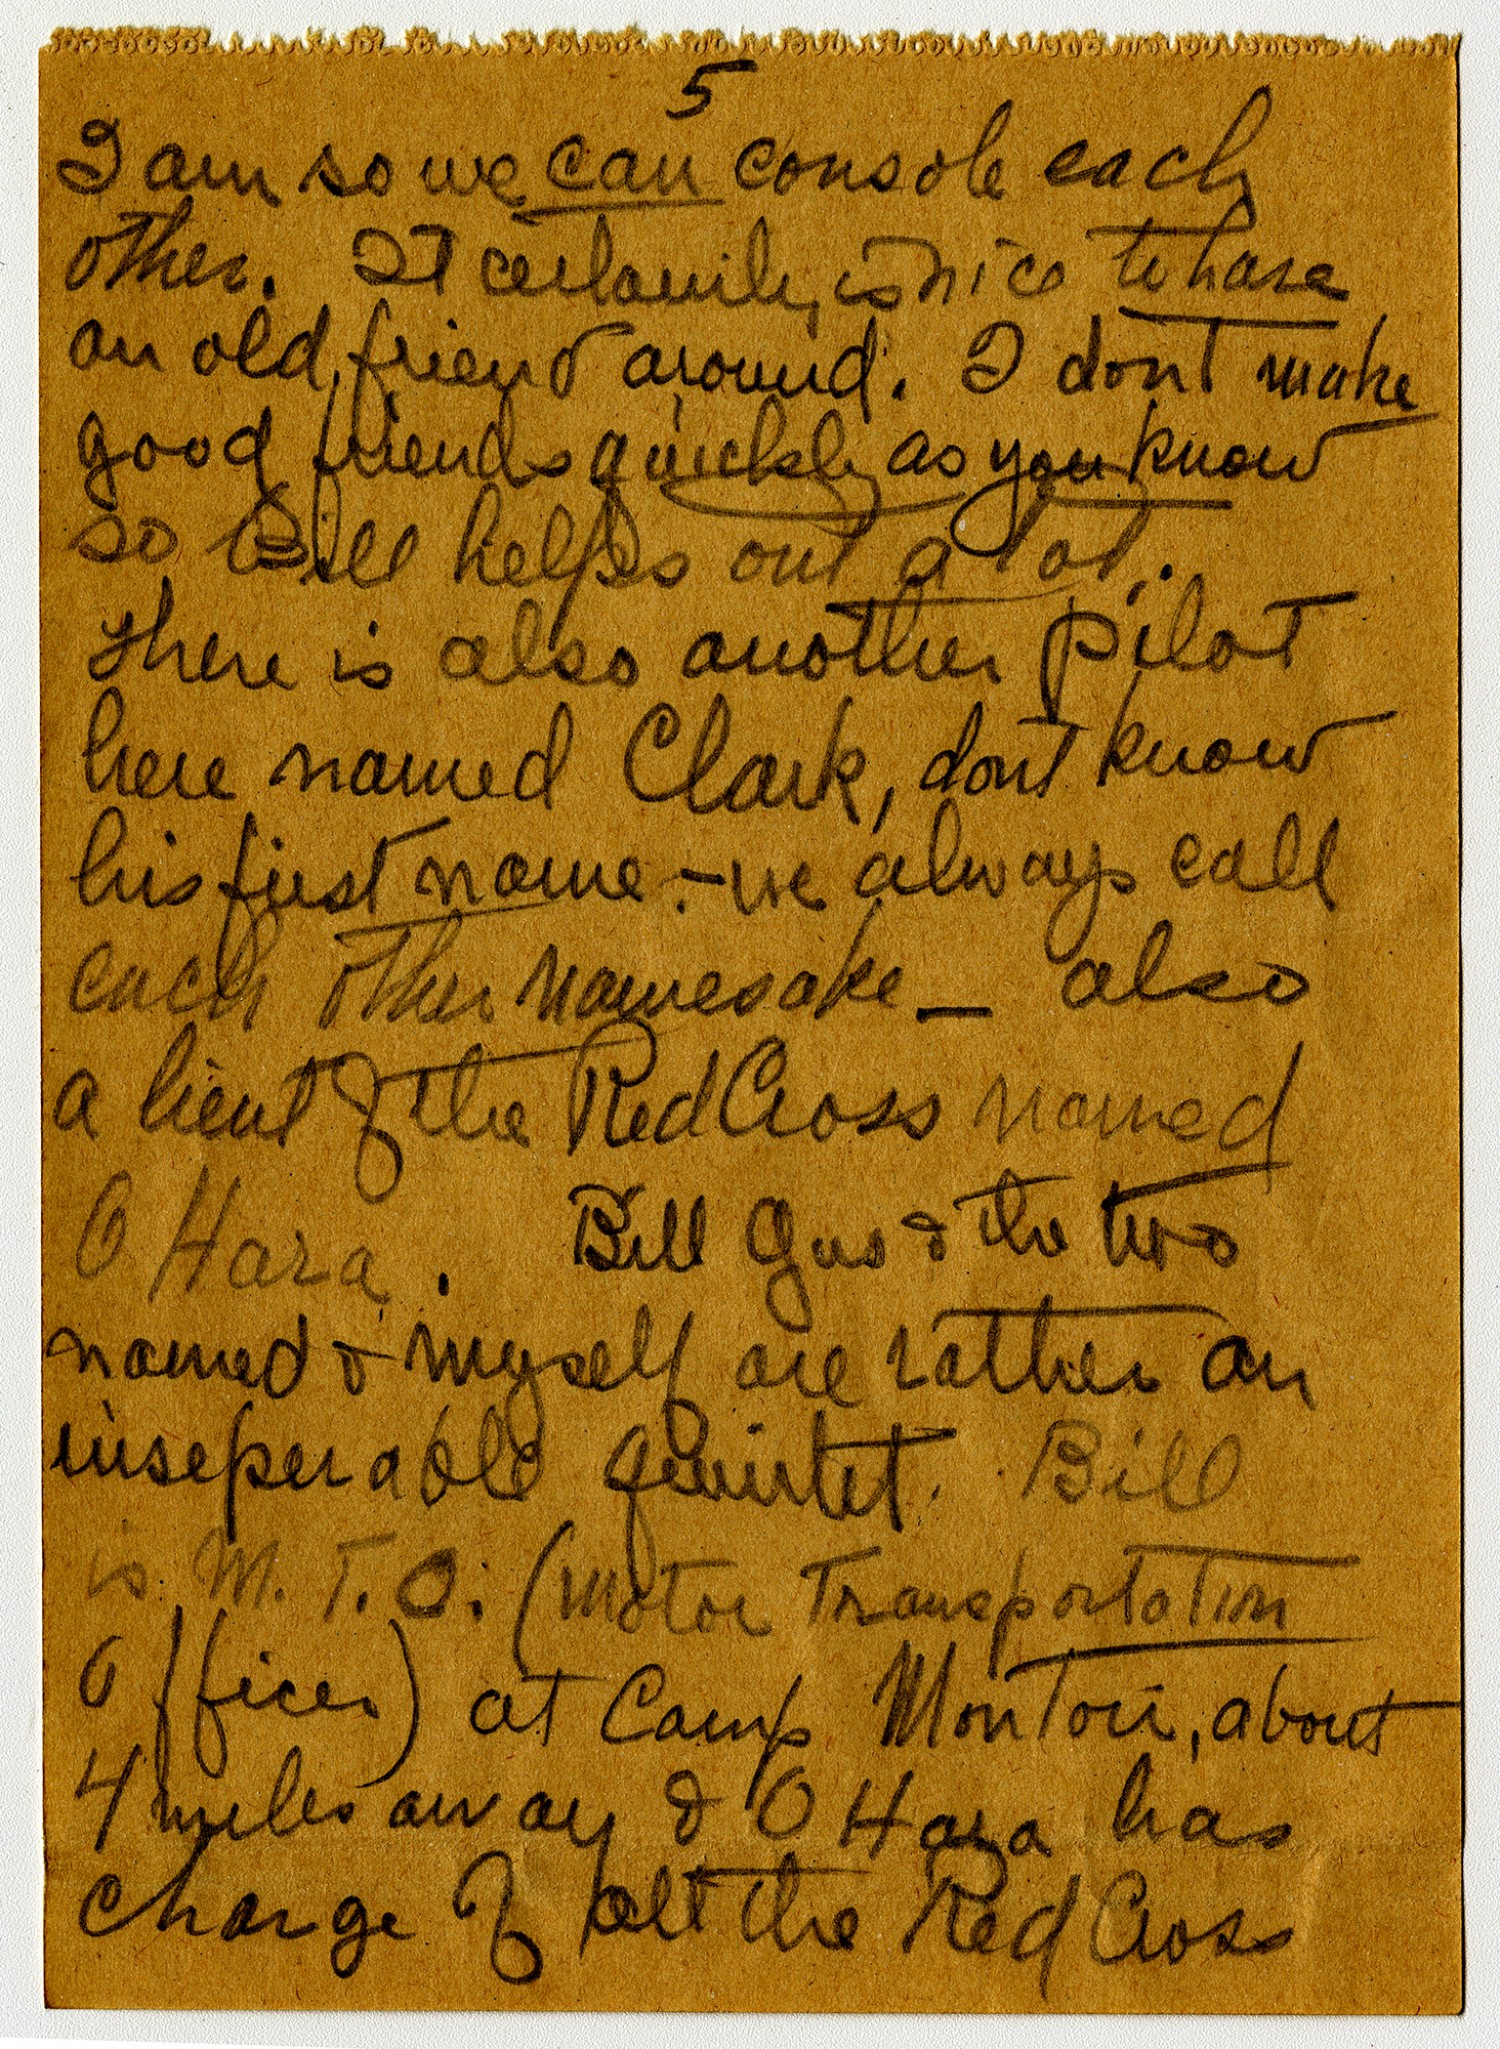 5
I am so we can console each
other. It certainly is nice to have
an old friend around. I dont make
good friends quickly as you know
so Bill helps out a lot.
There is also another pilot
here named Clark, dont know
his first name - we always call
each other namesake - also
a lieut of the Red Cross named
O Hara. Bill Gus & the two
named & myself are rather an
inseperable quintet. Bill
is M. T. O. (Motor Transportation
Officer) at Camp Montoir, about
4 miles away & O Hara has
charge of all the Red Cross